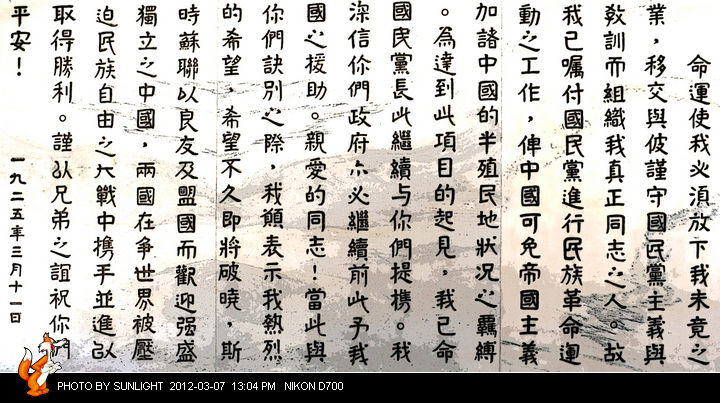 命運使我必須放下我未竟之
業，移交與彼謹守國民黨主義與
教訓而組織我真正同志之人。故
我已囑付國民黨進行民族革命運
動之工作，俾中國可免帝國主義
加諸中國的半殖民地狀況之羈縛
。為達到此項目的起見，我已命
國民黨長此繼續与你們提携。我
深信你們政府亦必繼續前此予我
國之援助。親愛的同志！當此與
你們訣別之際，我願表示我熱烈
的希望，希望不久即將破曉，斯
時蘇聯以良友及盟國而歡迎强盛
獨立之中國，兩國在争世界被壓
迫民族自由之大戰中携手並進以
取得勝利。謹以兄弟之誼祝你們
平安！
一九二五年三月十一日
PHOTO BY SUNLIGHT 2012-03-07 13:04 PM NIKON D700